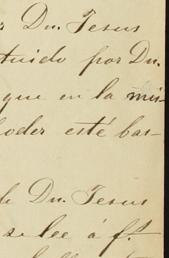 r Dn. Jesus
tuido por Dn.
que en la mis-
poder esté bas-
de Dn. Jesus
se lee á f.s